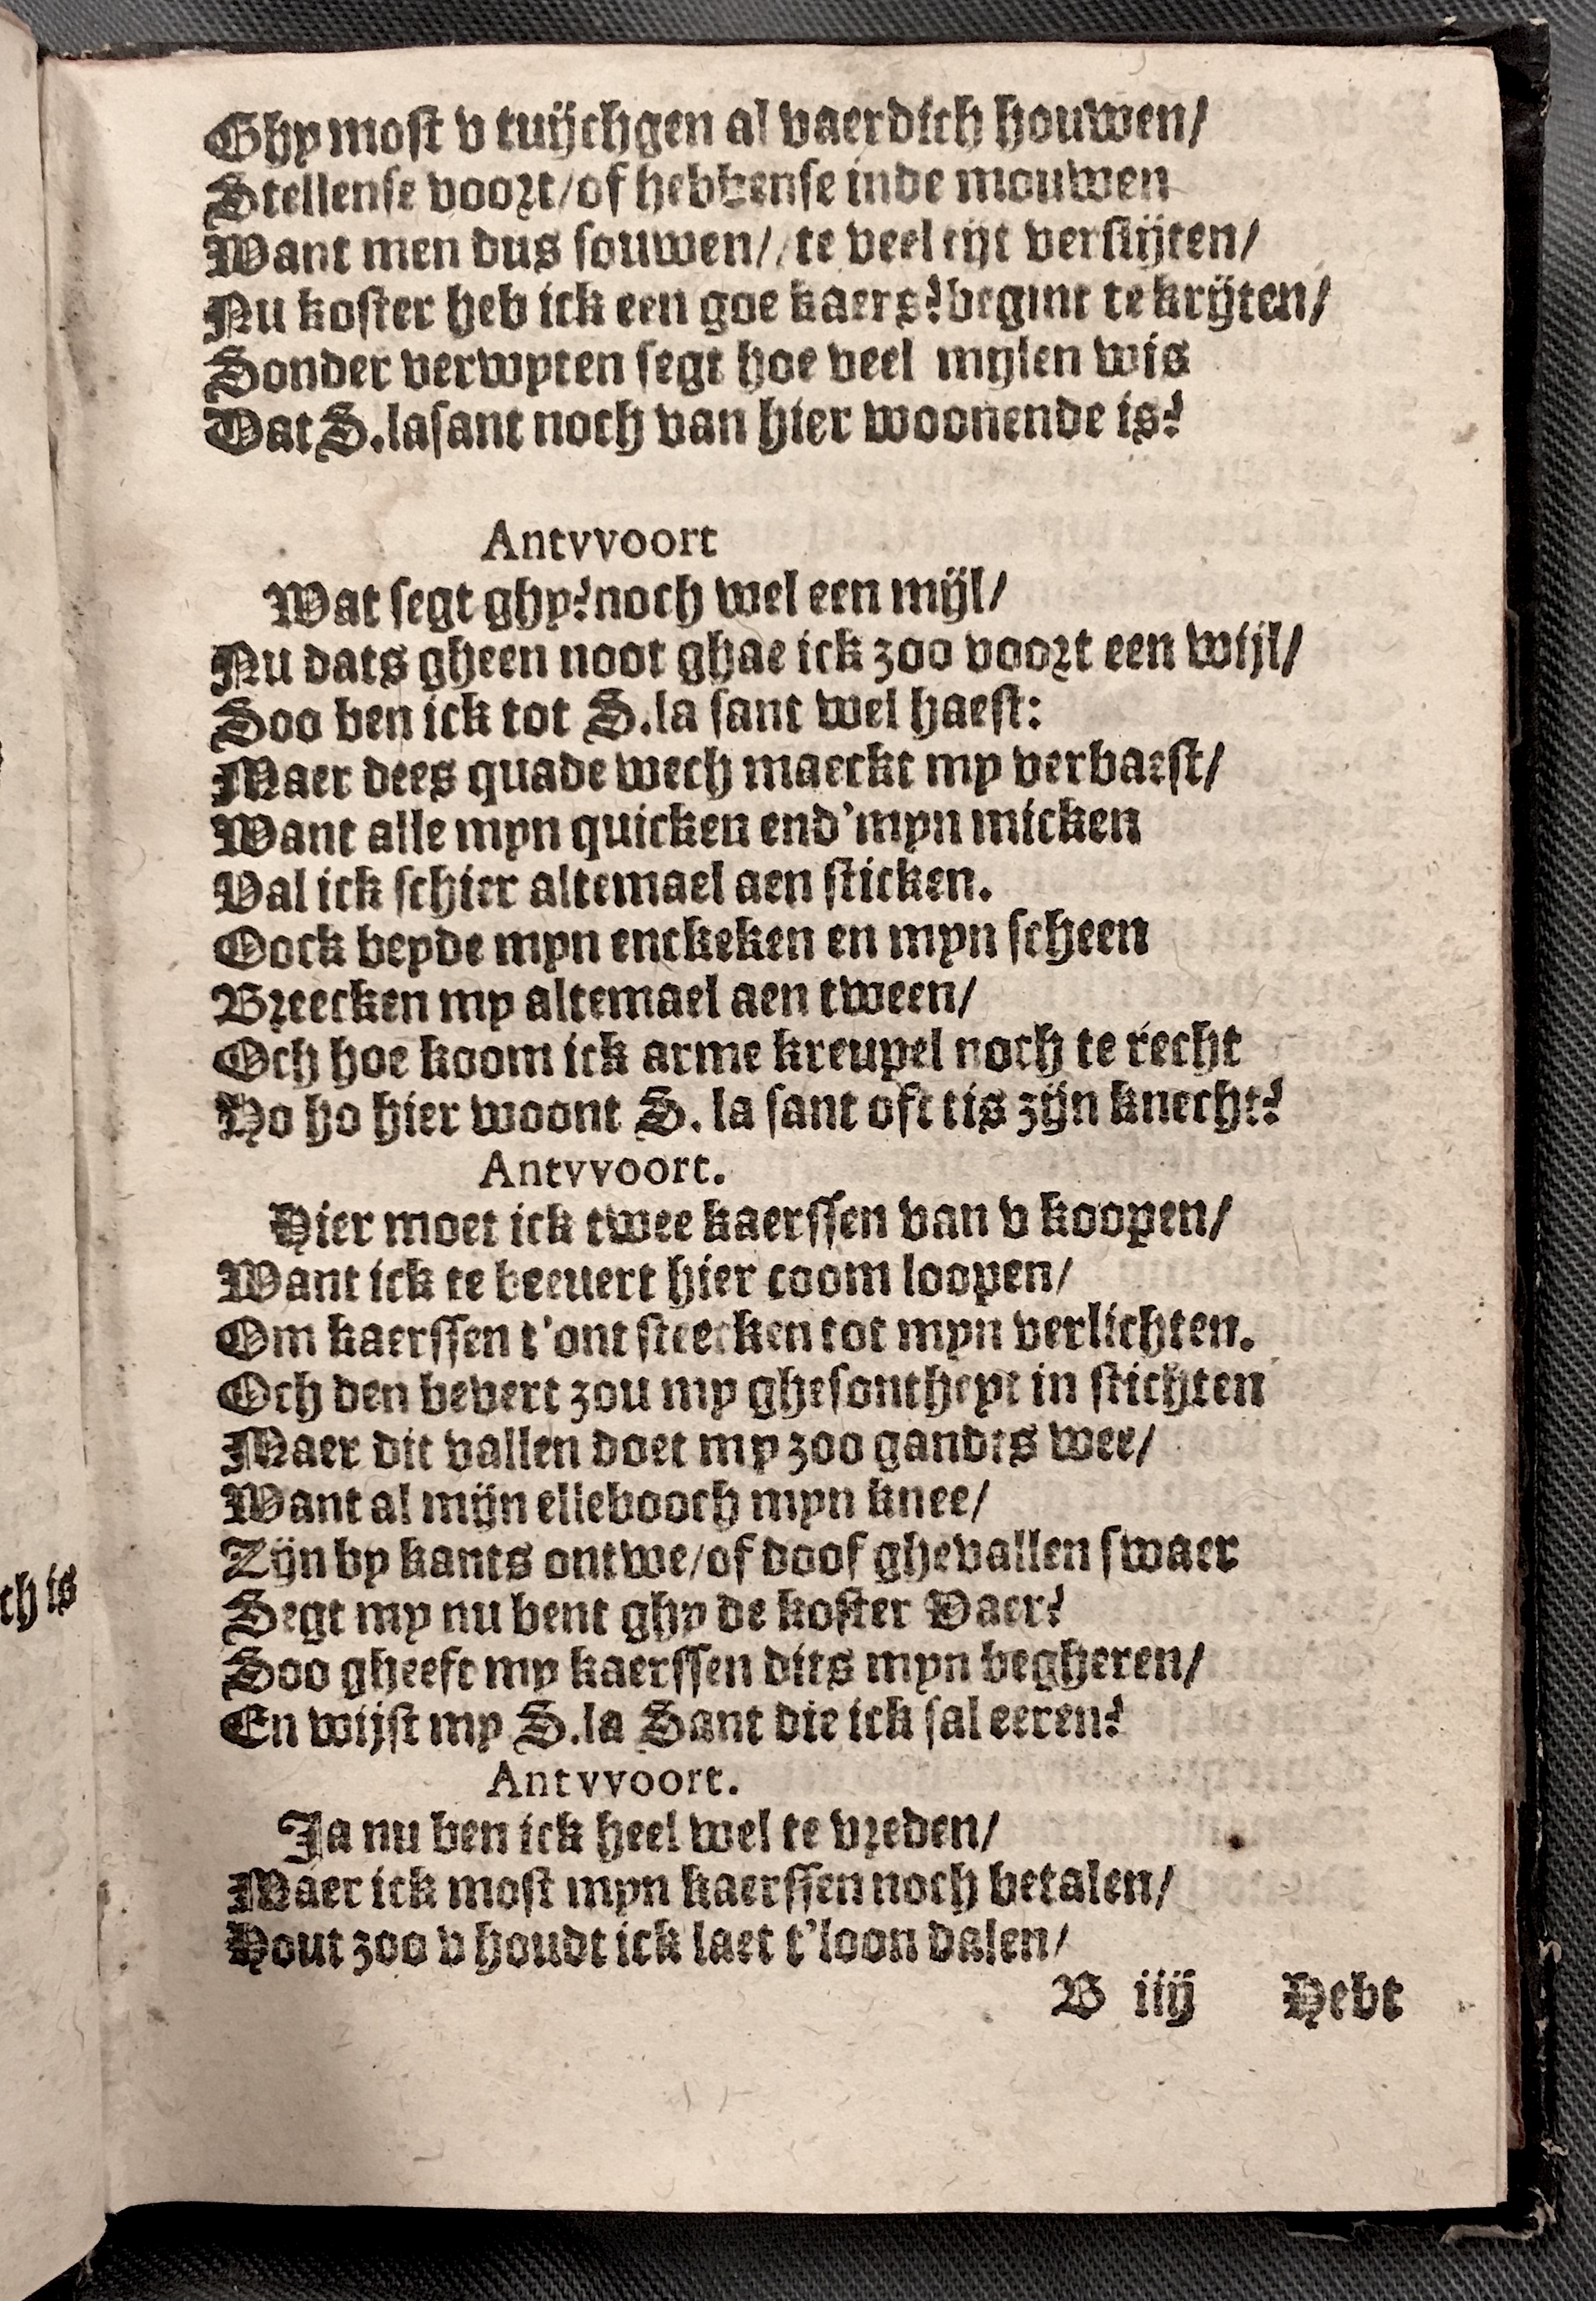 Ghy most v tuijchgen al vaerdich houwen/
Stellense voort/of hebbense inde mouwen
Want men dus souwen//te veel tijt verslijten/
Nu koster heb ick een goe kaers? begint te krijten/
Sonder verwyten segt hoe veel mylen wis
Dat S.lasant noch van hier woonende is?
Antvvoort
Wat segt ghy? noch wel een mijl/
Nu dats gheen noot ghae ick zoo voort een wijl/
Soo ben ick tot S.la sant wel haest:
Maer dees quade wech maeckt my verbaest/
Want alle myn quicken end'myn micken
Val ick schier altemael aen sticken.
Oock beyde myn enckeken en myn scheen
Breecken my altemael aen tween/
Och hoe koom ick arme kreupel noch te recht
Ho ho hier woont S. la sant oft tis zijn knecht?
Antvvoort.
Hier moet ick twee kaerssen van v koopen/
Want ick te beeuert hier coom loopen/
Om kaerssen t'ont steecken tot myn verlichten.
Och den bevert zou my ghesontheyt in stichten
Maer dit vallen doet my zoo gandts wee/
Want al mijn ellebooch myn knee/
Zijn by kants ontwe/of doof ghevallen swaer
Segt my nu bent ghy de koster Vaer?
Soo gheeft my kaerssen dits myn begheren/
En wijst my S.la Sant die ick sal eeren?
Antvvoort.
Ja nu ben ick heel wel te vreden/
Maer ick most myn kaerssen noch betalen/
Hout zoo v houdt ick laet t'loon dalen/
B iiij Hebt
ch is